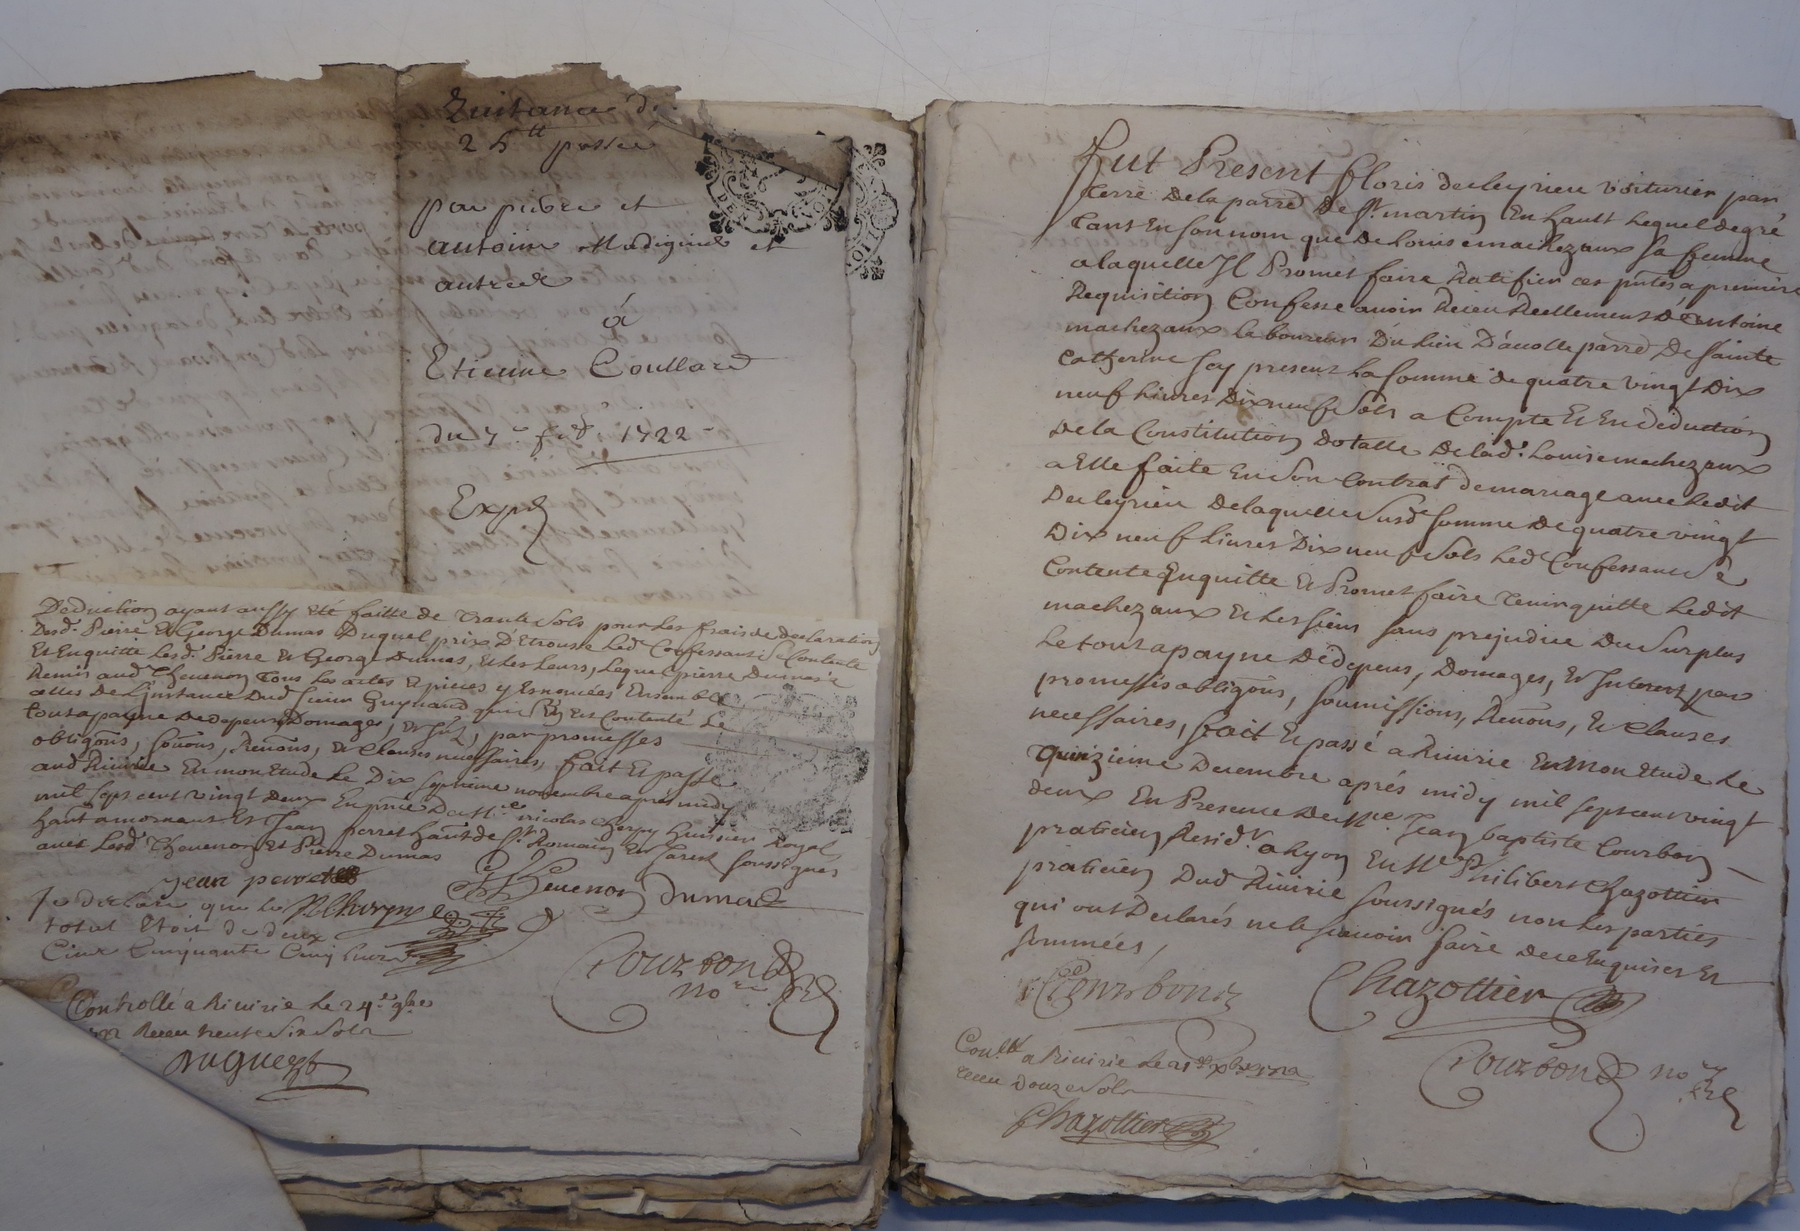 Quitance de
25 ᵗᵗ passée
par pierre et
antoine Madiginier et
autres
à
Etienne Coullard
du 7ᵉ fed 1722
Exped
Deduction ayant aussy eté faitte de Trante Sols pour les frais de declaration
Desd. Pierre Et George Dumas Duquel prix D'Etrousse Led Confessant Se Contente
Et Enquitte Lesd. Pierre Et George Dumas, et Les Leurs, Lequel pierre Dumas à
Remis aud Thevenon Tous Les actes Et pieces y Enoncées Ensemble
celles De L'instance Dud Sieur Guynand qui S'en Est Contenté Le
tout apayne De depens Domages, et Jnts, par promesses
obligõns, soũons, Renõns, Et Clauses nécessaires, fait Et passé
aud Riuirie En mon Etude Le Dix septieme novembre apres midy
mil sept cent vingt Deux En pñce De Mᵉ nicolas Cherpy huissier Royal
habt a mornant Et Jean perret habt de Sᵗ Romain En Jarest soussignes
avec Lesd. Thevenon Et Pierre Dumas
Jean perret
Thevenon Dumas
Je declare que le NCherpy
total Etoit de deux
Cent Cinquante Cinq livres
Courbon
noʳᵉ
Controllé a Riuirie Le 24ᵉ 9bre
1722 Receu trente Six Sols
Duguest
Fut Present Floris decleyrieu voiturier par
terre De la parrᵉ De Sᵗ martin En hault Lequel de gré
tant En son nom que De Louise machezaux sa femme
a laquelle Jl Promet faire Ratifier ces pñtes a premiere
Requisition Confesse avoir Receu Reellement D'antoine
machezaux Laboureur Du Lieu D'auolle parrᵉ De Sainte
Catherine Jcy present La somme de quatre vingt Dix
neuf Liures Dix neuf Sols a Compte Et En deduction
De la Constitution Dotalle De lad. Louise machezaux
a Elle faite En Son Contrat de mariage avec Ledit
Decleyrieu De laquelle Susdᵉ somme De quatre vingt
Dix neuf Liures Dix neuf Sols Led Confessant Se
Contente Enquitte Et Promet faire tenir quitte Ledit
machezaux Et Les siens sans prejudice Du Surplus
Le tout a payne De depens, Domages, Et Jnterest par
promesses obligõns, soumissions, Renõns, Et Clauses
necessaires, fait Et passé a Riuirie En mon Etude Le
quinzieme Decembre aprés midy mil sept cent vingt
deux En Presence De Mᵉ Jean baptiste Courbon
praticien Residᵗ a Lyon Et Mᵉ Philibert Chazottier
praticien Dud Riuirie soussignés non Les parties
qui ont Declarés ne le scauoir faire De ce Enquises Et
sommées,
Courbon Chazottier
Courbon noʳᵉ
Conllé a Riuirie Le 21ᵉ xbre 1722
receu Douze Sols
Chazottier